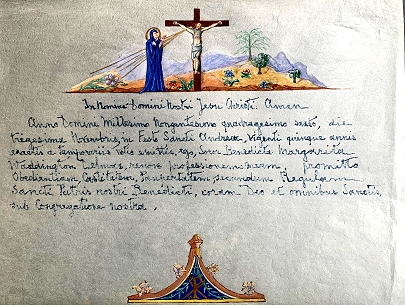 In Nomine Domini Nostri Jesu Christi. Amen
Anno Domini Millesimo Nongentesimo quadragesimo sexto, die
trigesima Novembris, in Festo Sancti Andreæ, viginti quinque annis
exactis a temporariis votis emissis, ego, Soror Benedicta Margarita
Waddington professionem meam promitto
Obedientiam, Castitatem, Paupertatem, secundum Regulam
Sancti Patris nostri Benedicti, coram Deo et omnibus Sanctis,
sub Congregatione nostra